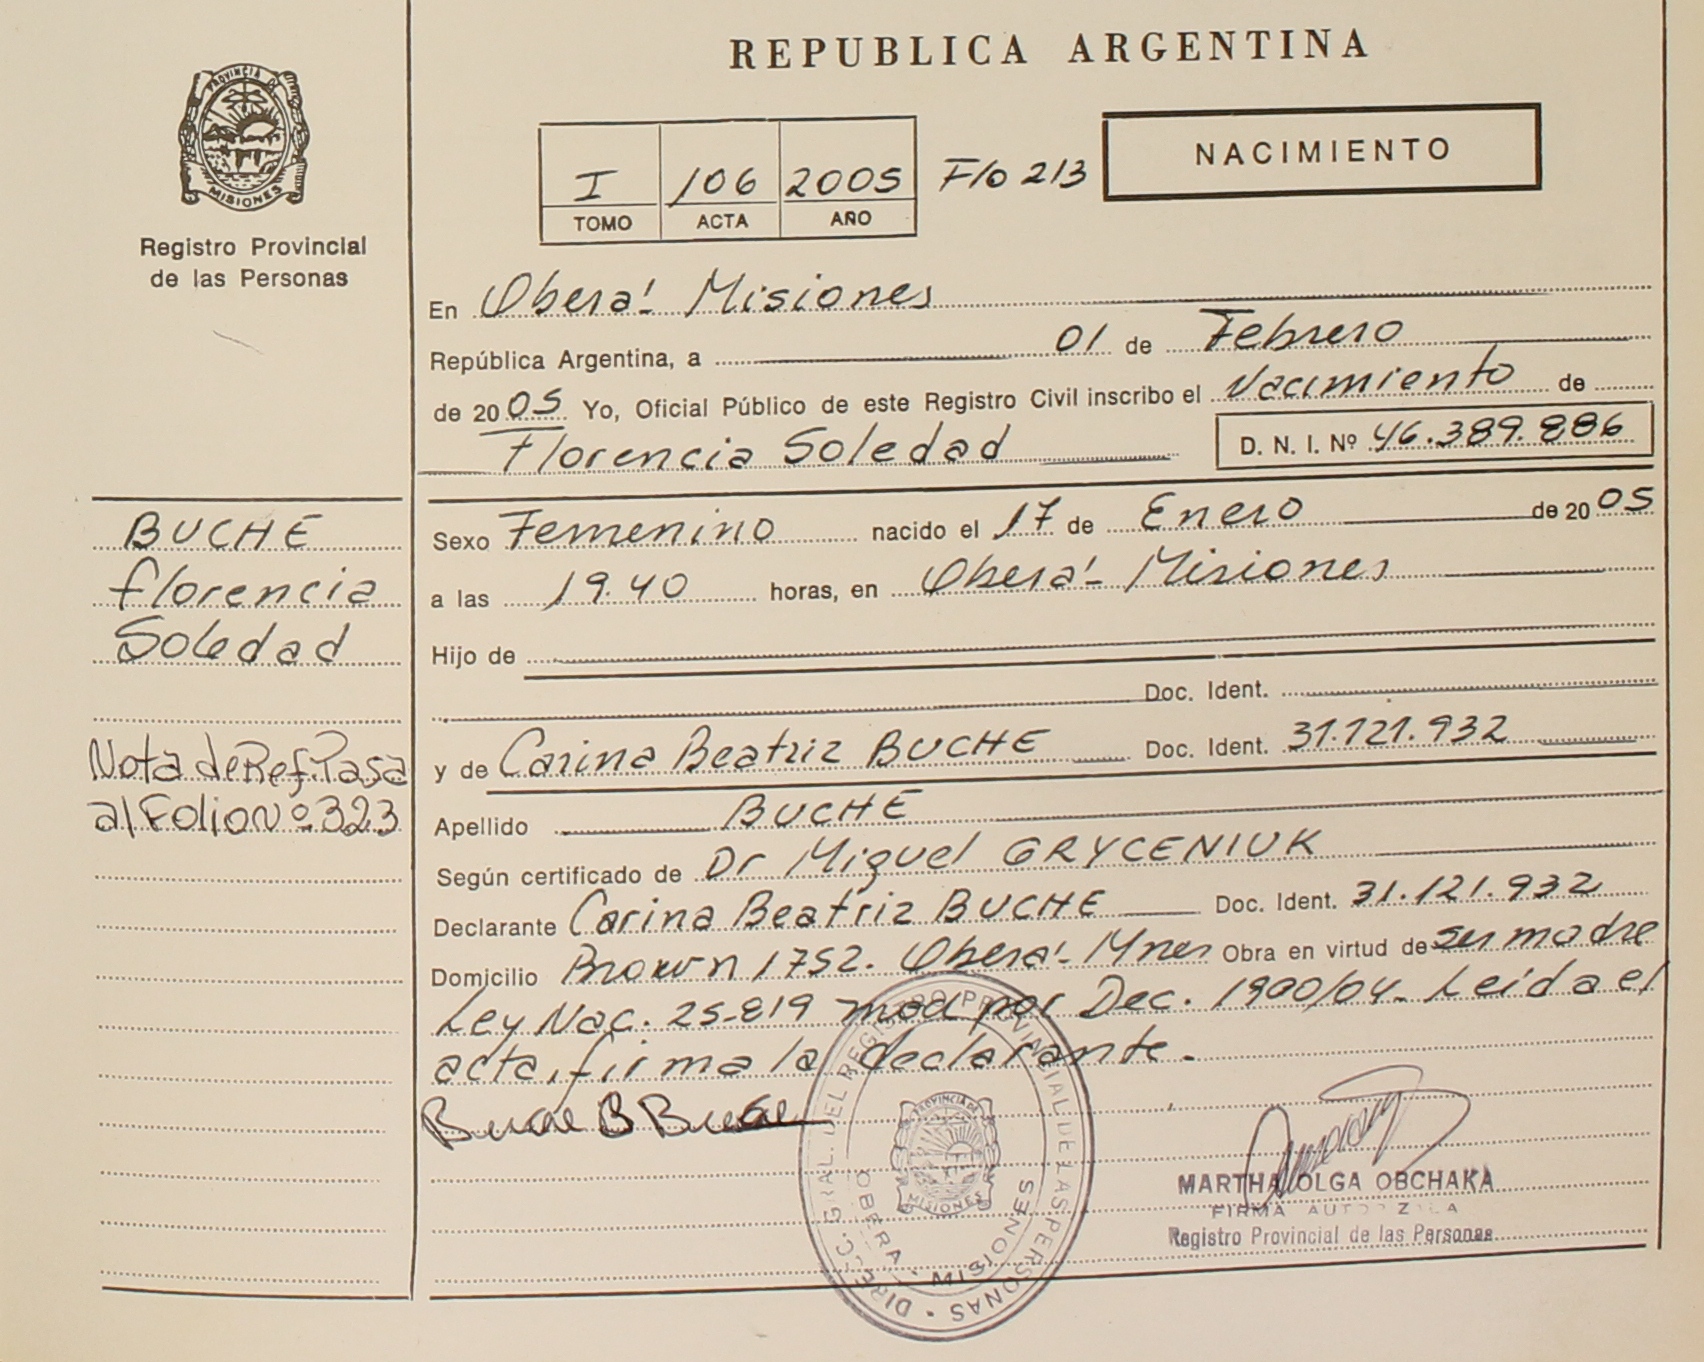 PROVINCIA DE
MISIONES
Registro Provincial
de las Personas
REPUBLICA ARGENTINA
I 106 2005 F/o 213
TOMO ACTA AÑO
NACIMIENTO
En Oberá - Misiones
República Argentina, a 01 de Febrero
de 2005 Yo, Oficial Público de este Registro Civil inscribo el Nacimiento de
Florencia Soledad D. N. I. Nº 46.389.886
BUCHE
Florencia
Soledad
Nota de Ref. Pasa
al Folio Nº 323
Sexo Femenino nacido el 17 de Enero de 2005
a las 19.40 horas, en Oberá - Misiones
Hijo de
Doc. Ident.
y de Carina Beatriz BUCHE Doc. Ident. 31.121.932
Apellido BUCHE
Según certificado de Dr Miguel GRYCENIUK
Declarante Carina Beatriz BUCHE Doc. Ident. 31.121.932
Domicilio Brown 1752. Oberá - Mnes Obra en virtud de ser madre
Ley Nac. 25-819 mod por Dec. 1900/04. Leida el
acta, firma la declarante.
DIRECC. GRAL. DEL REGISTRO PROVINCIAL DE LAS PERSONAS
OBERA - MISIONES
PROVINCIA DE
MISIONES
MARTHA OLGA OBCHAKA
FIRMA AUTORIZADA
Registro Provincial de las Personas